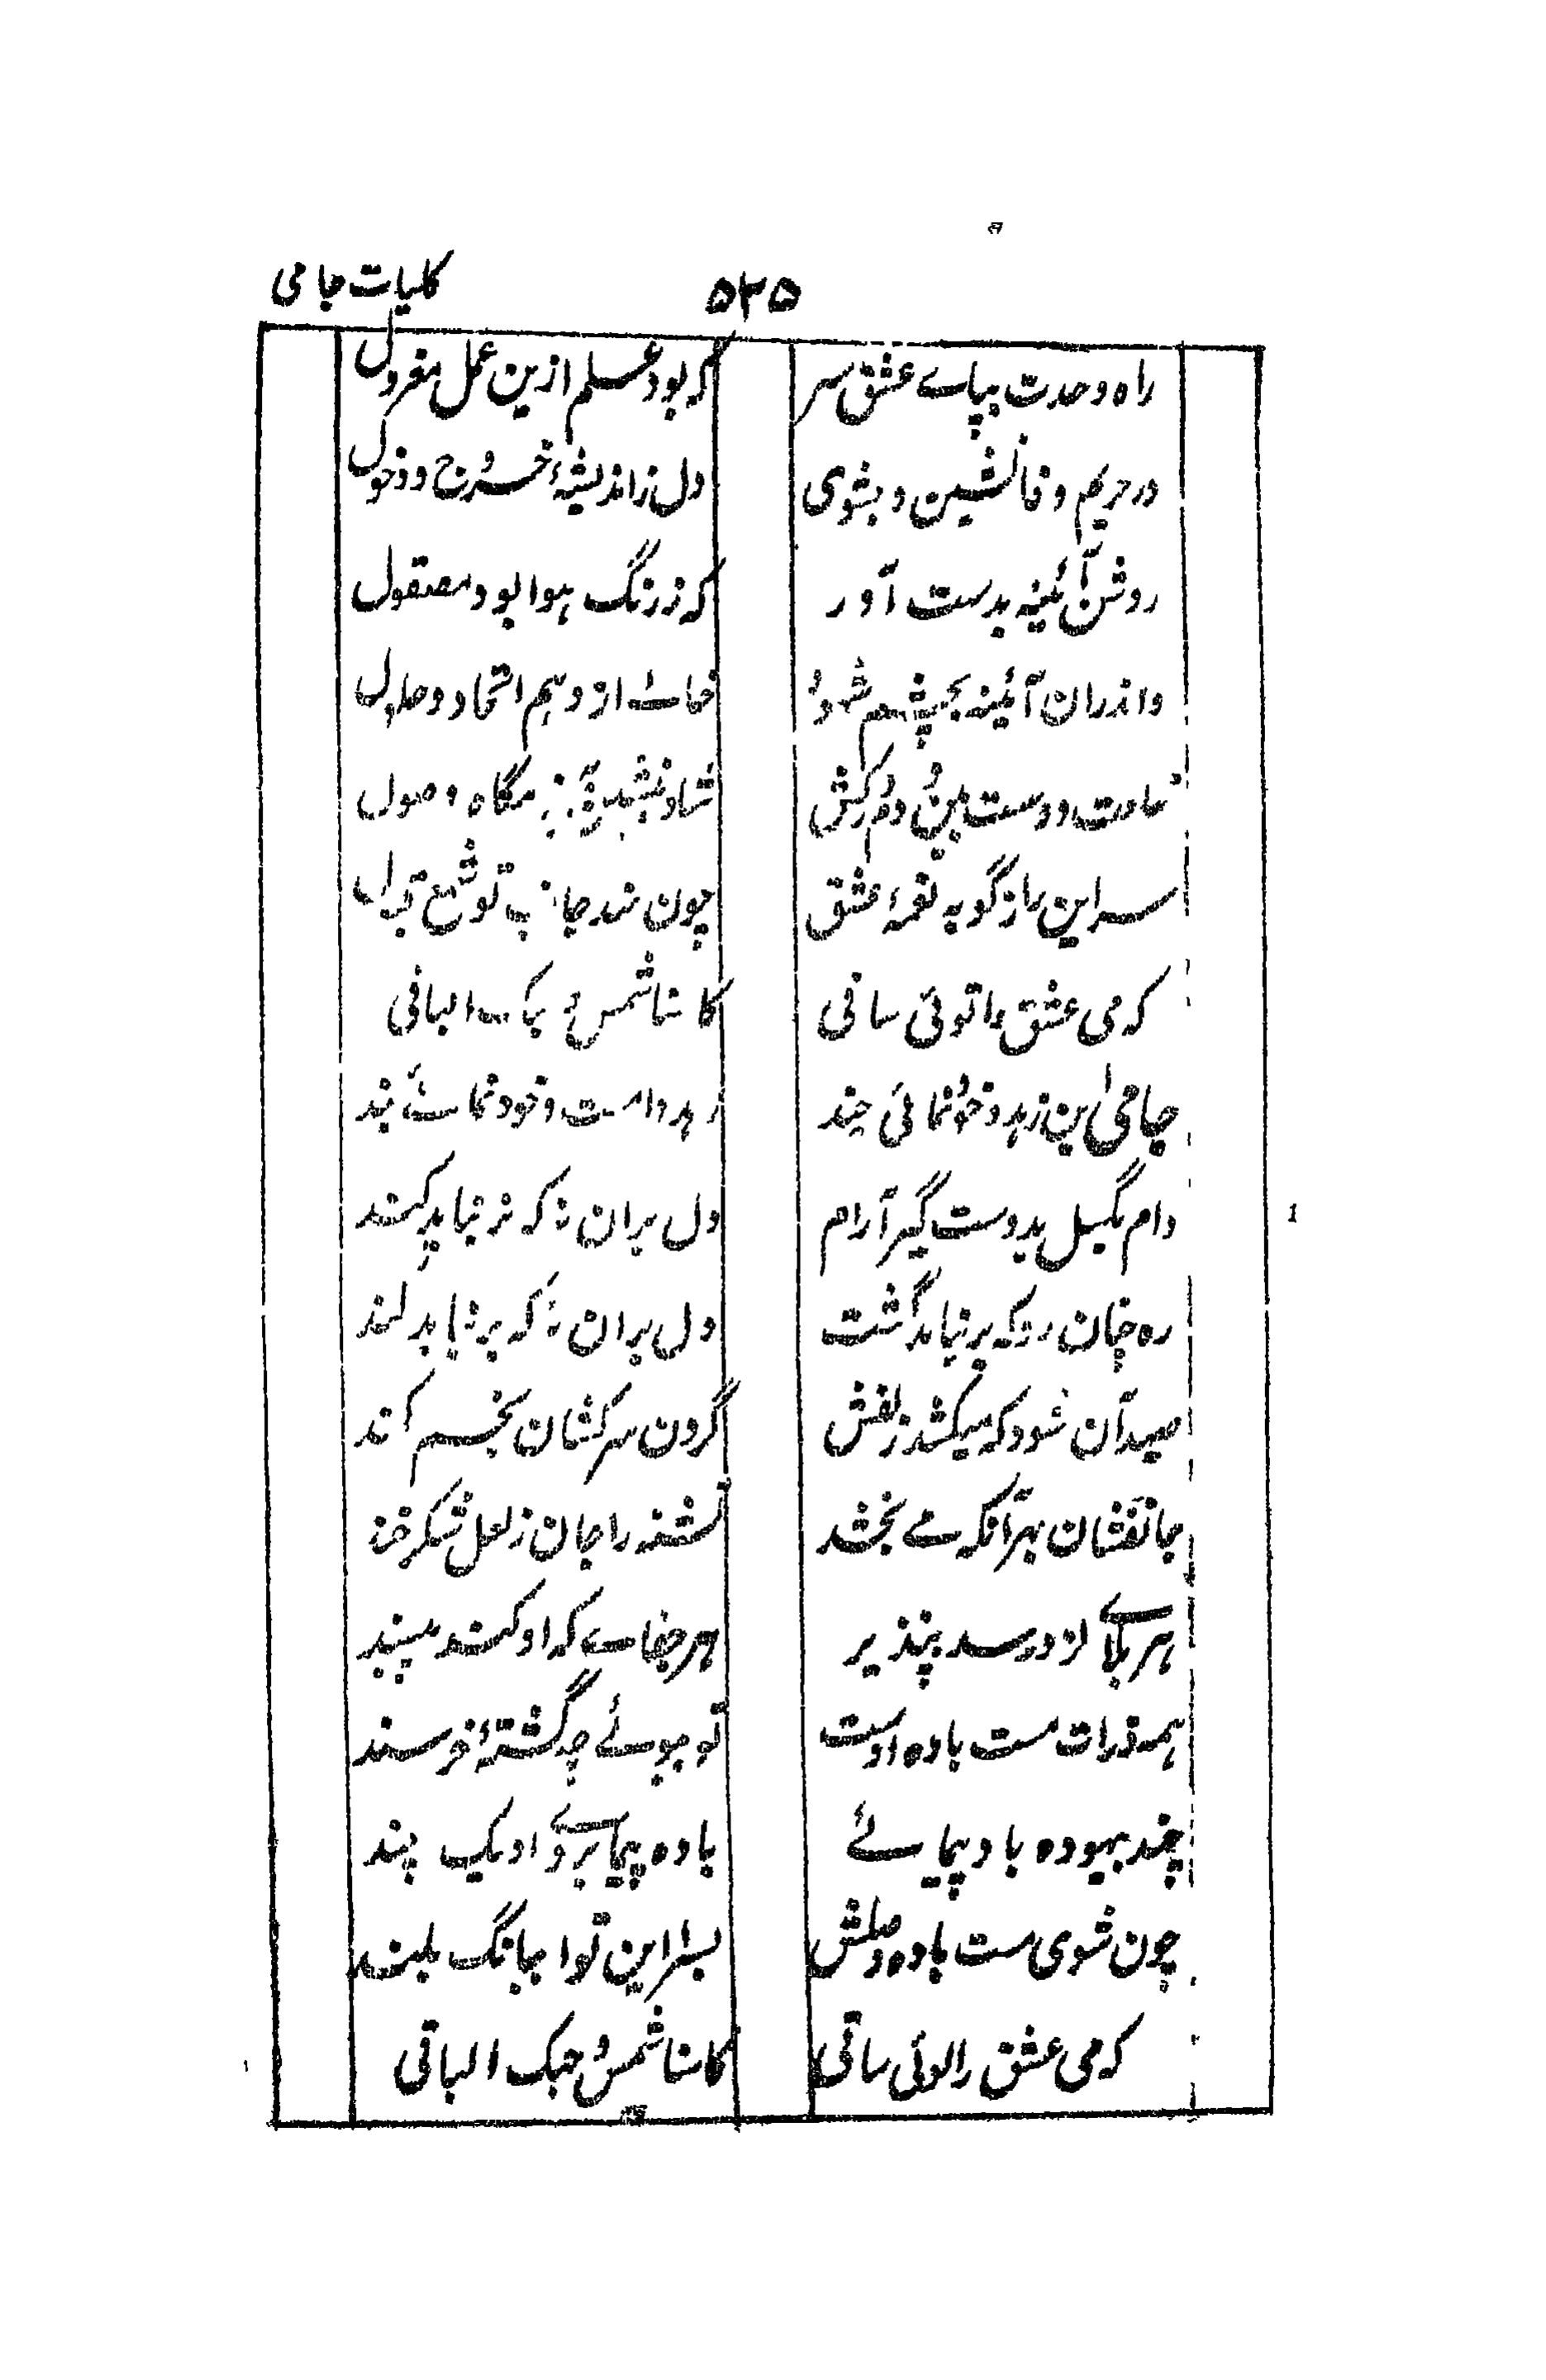 کلیات جامی
۵۳۵
راه وحدت بپاے عشق سپر که بود علم ازین عمل معزول
در حریم وفا نشین و بشوی دل ز اندیشهٔ خروج و دخول
روشن آئینه بدست آور که ز زنگ هوا بود مصقول
واندران آئینه بچشم شهود از وهم اتحاد و حلول
دوست بین و دم درکش وصول
سر این راز گو به نغمهٔ عشق چون تو سمع قبول
که می عشق را توئی ساقی الباقی
جامی این زهد و خودنمائی چند زهد دامست و خودنمائے بند
دام بگسل بدوست گیر آرام
ره چنان رو که بر نیاید گشت دل بران نه که بر نباید کند
صید آن شو که میکشد زلفش گردن سرکشان بخم کمند
جانفشان بهر آنکه مے بخشد کشته را جان ز لعل شکرخند
هر بلاے کزو رسد بپذیر هر جفاے که او کند بپسند
همه ذرات مست باده اوست تو ببوئے چه گشتهٔ خرسند
چند بیهوده باد پیمائے باده پیما بروے او یک چند
چون شوی مست باده وصلش بسرا این نوا ببانگ بلند
که می عشق را توئی ساقی کاسنا شمس و حبک الباقی